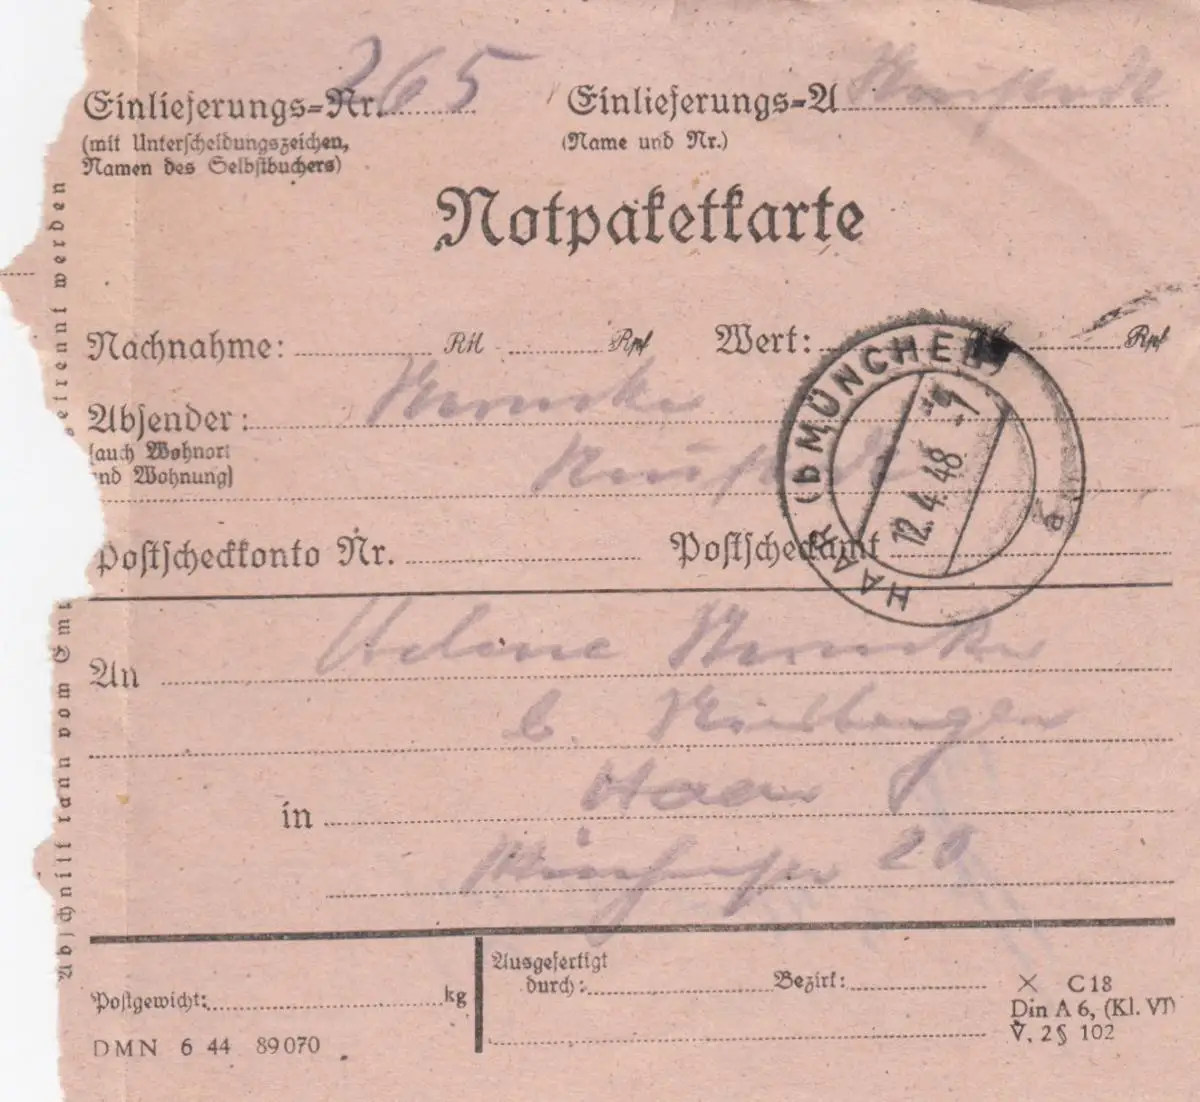 Einlieferungs=Nr. 265
Einlieferungs=A Neustadt
(mit Unterscheidungszeichen,
Namen des Selbstbuchers)
(Name und Nr.)
Notpaketkarte
Nachnahme: RM Rpf Wert: Rpf
Absender:
(auch Wohnort
und Wohnung)
Neustadt
Postscheckkonto Nr. Postscheckamt
HAAR (b MÜNCHEN) a
12.4.48
An
b.
in Haar
20
Postgewicht: kg
Ausgefertigt
durch: Bezirk:
DMN 6 44 89070
× C 18
Din A 6, (Kl. VI)
V, 2 § 102
Abschnitt kann vom Em
getrennt werden